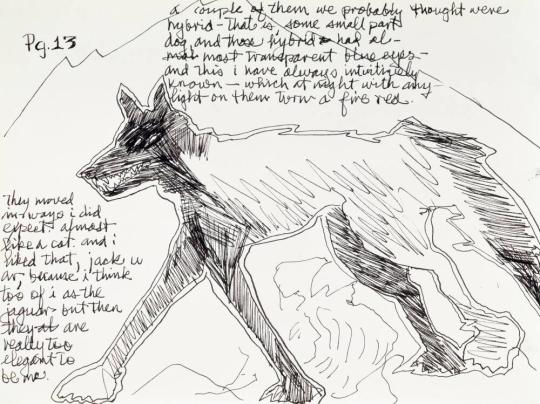 Pg. 13
a couple of them we probably thought were
hybrid - that is, some small part
dog, and those hybrids had al-
most transparent blue eyes -
and this i have always intuitively
known - which at night with any
light on them turn a fire red.
They moved
in ways i did
expect. almost
like a cat. and i
liked that, jack w
dr, because i think
too of i as the
jaguar. but then
they are
really too
elegant to
be me.